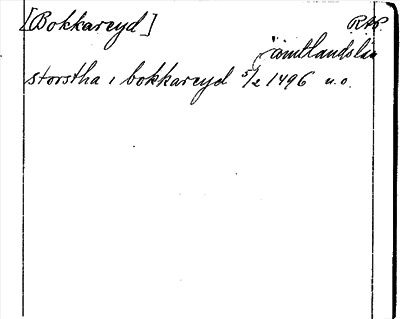 [Bokkareyd] RAP.
Jämtlands län
storstha i bokkareyd 5/2 1496 u.o.